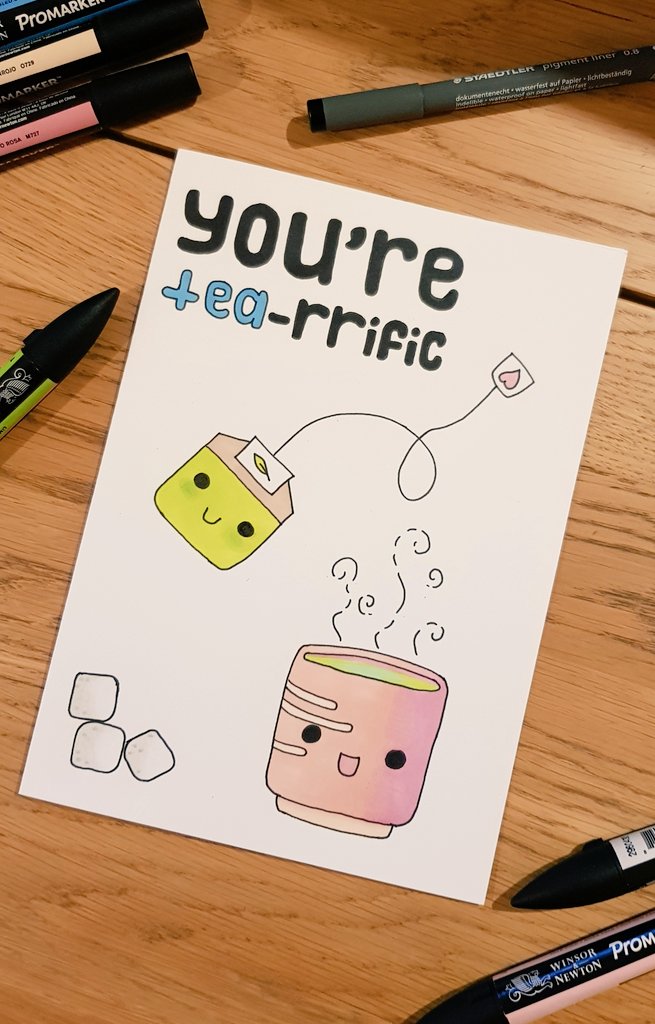 PROMARKER
ROJO O729
MARKER™
ROSA M727
STAEDTLER pigment liner 0.8
dokumentenecht • wasserfest auf Papier • lichtbeständig
indelible • waterproof on paper • lightfast
you're
tea-rrific
WINSOR
& NEWTON
PROM